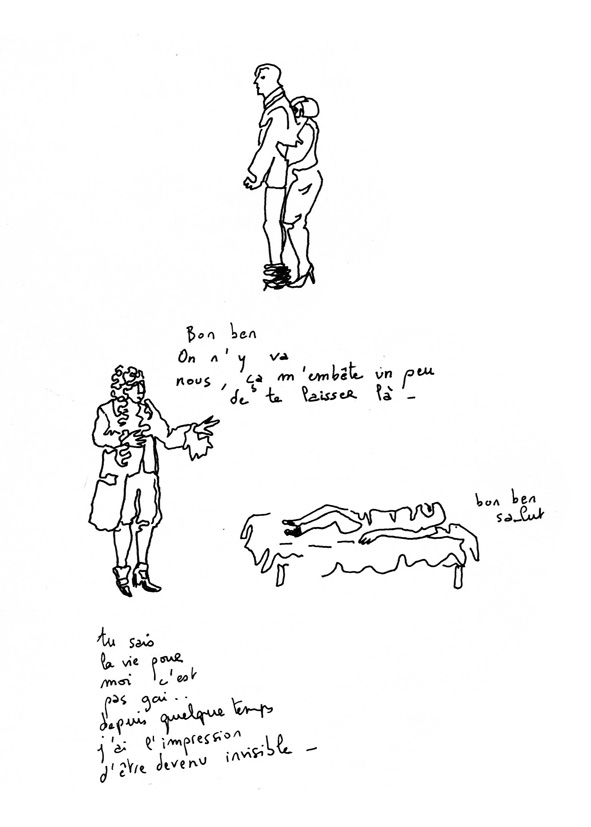 Bon ben
On n'y va
nous, ça m'embête un peu
de te laisser là -
bon ben
salut
tu sais
la vie pour
moi c'est
pas gai..
depuis quelque temps
j'ai l'impression
d'être devenu invisible -